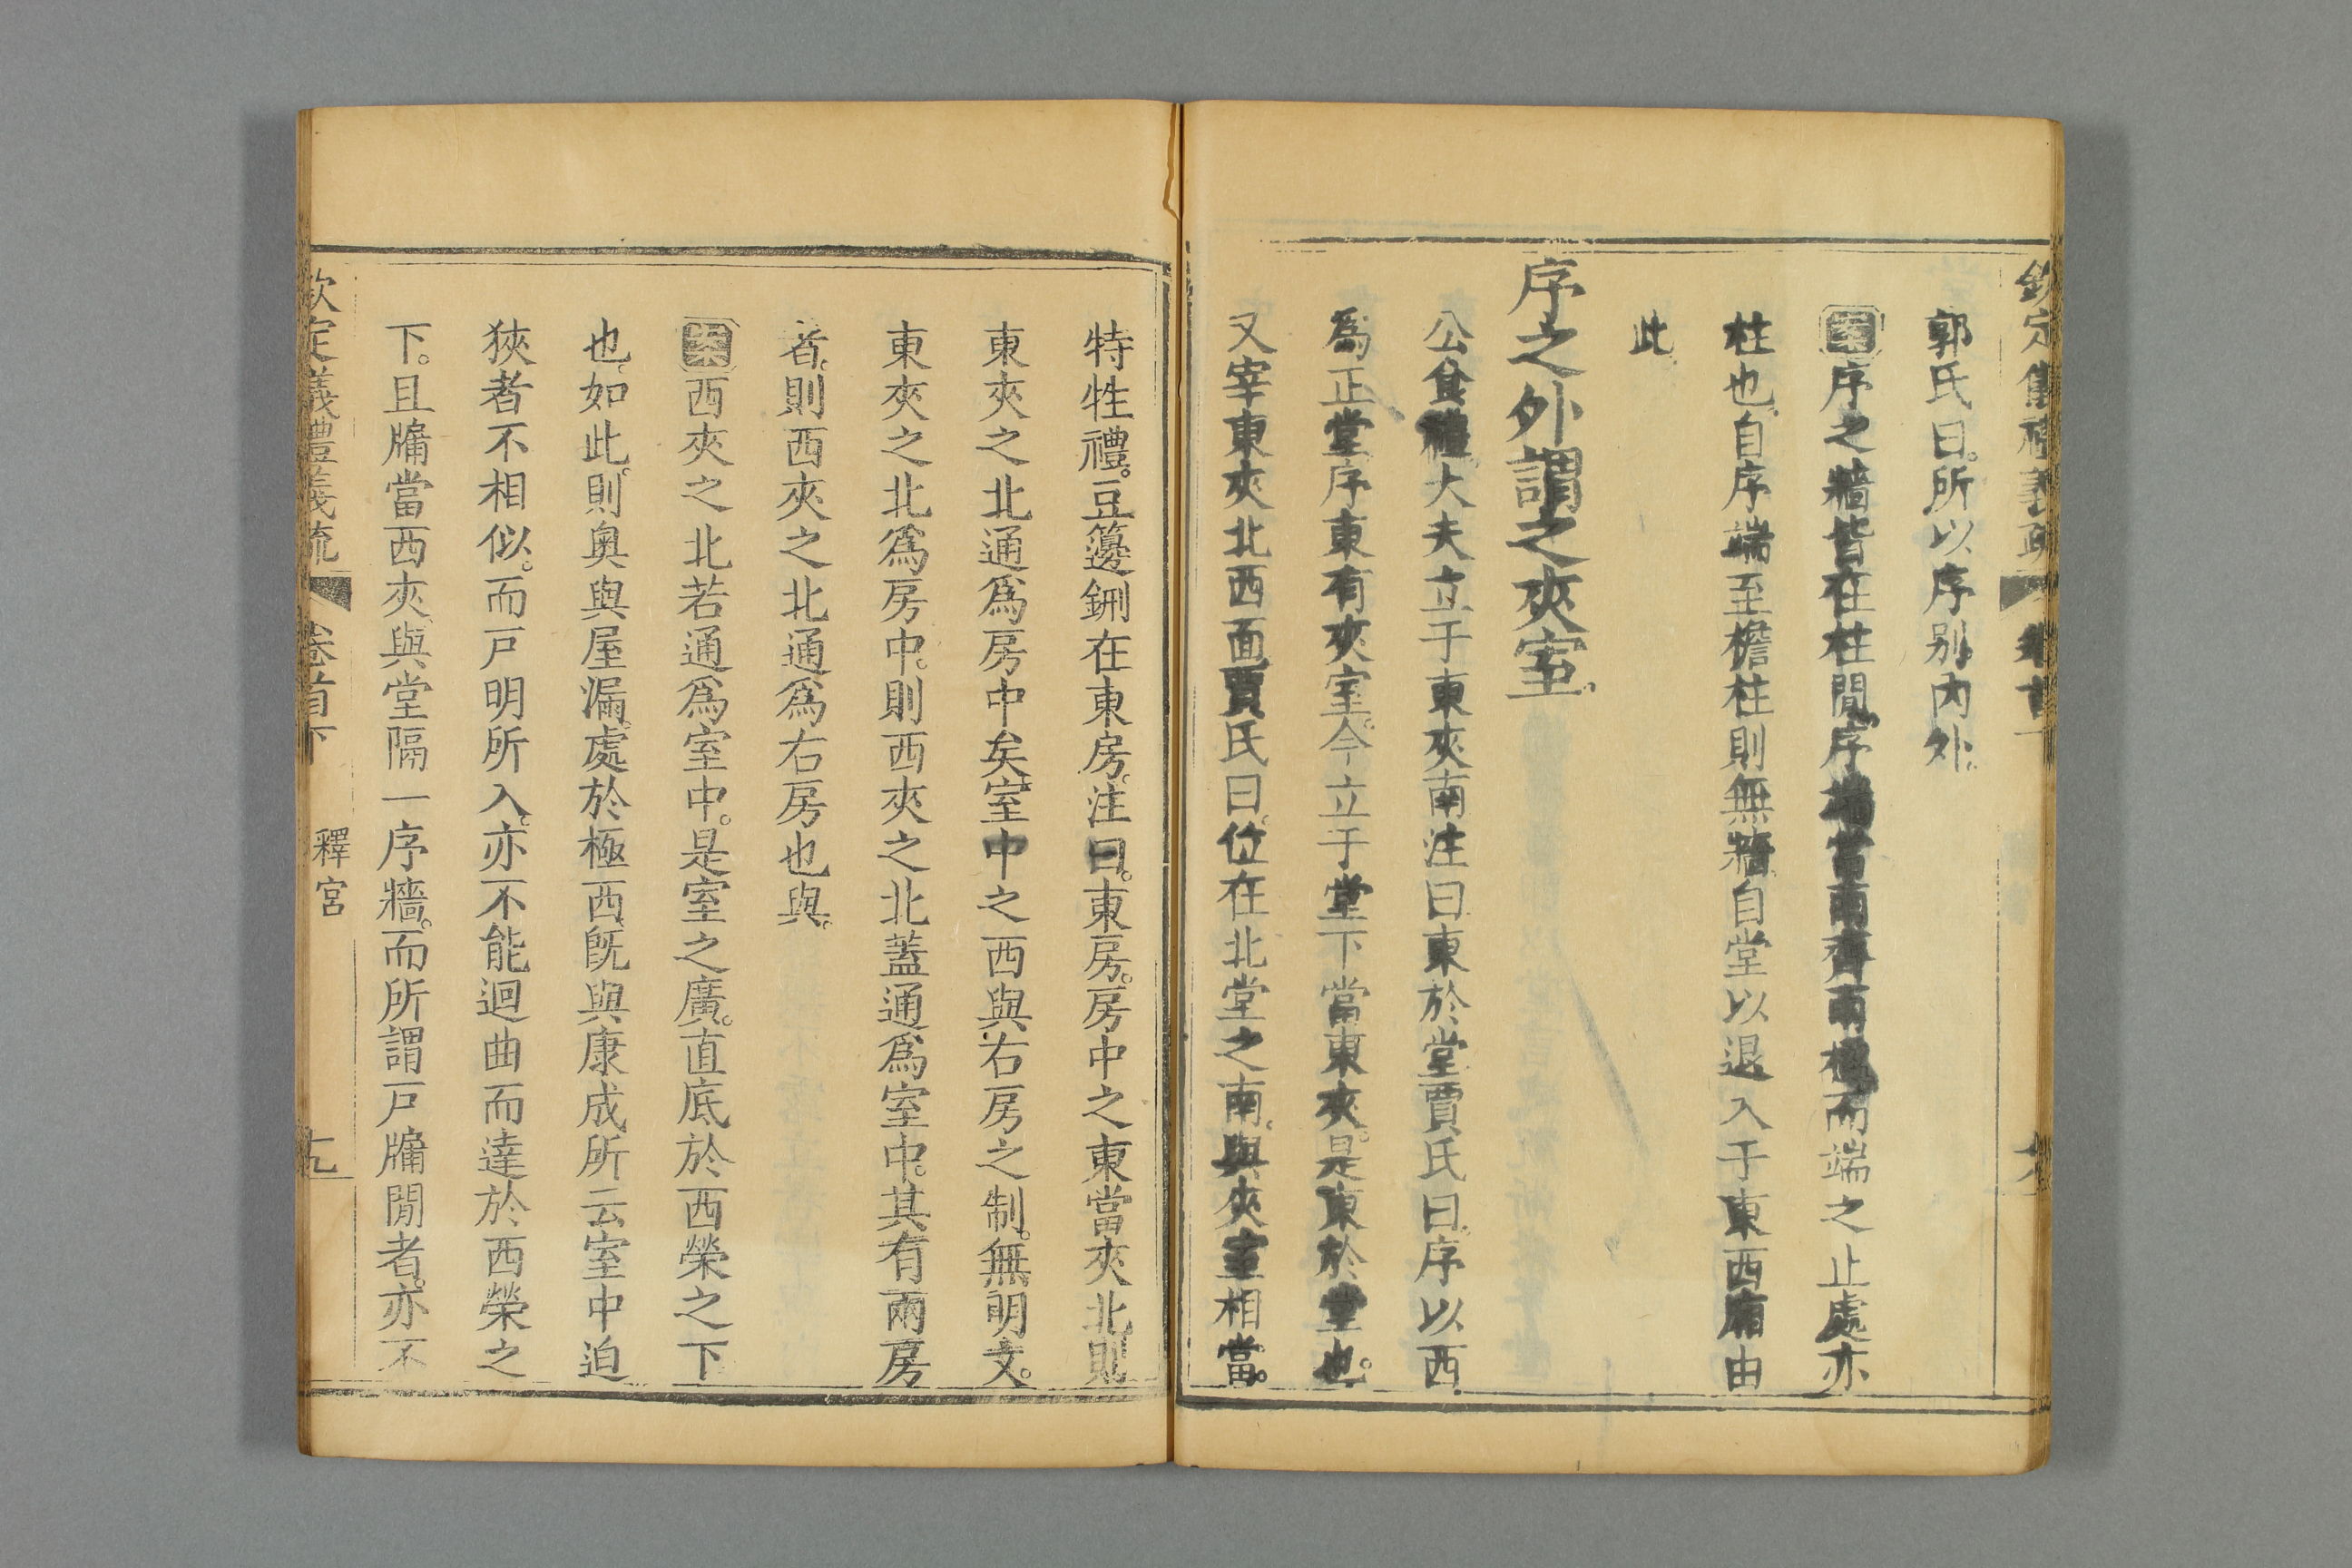 欽定儀禮義疏 卷首下
郭氏曰。所以序别内外。
案序之牆皆在柱間。序端當南齊兩楹。而端之止處亦
柱也。自序端至檐柱則無牆。自堂以退入于東西廂由
此。
序之外謂之夾室。
公食禮。大夫立于東夾南注曰東於堂賈氏曰。序以西
爲正堂序東有夾室。今立于堂下當東夾。是東於堂也。
又宰東夾北西面賈氏曰。位在北堂之南。與夾室相當。
特牲禮。豆籩鉶在東房。注曰。東房。房中之東當夾北則
東夾之北通爲房中矣。室中之西與右房之制。無明文。
東夾之北爲房中。則西夾之北蓋通爲室中。其有兩房
者。則西夾之北通爲右房也與。
案西夾之北若通爲室中。是室之廣。直底於西榮之下
也。如此。則奥與屋漏。處於極西。旣與康成所云室中迫
狹者不相似。而戸明所入。亦不能迴曲而達於西榮之
下。且牖當西夾。與堂隔一序牆。而所謂戸牖閒者。亦不
欽定儀禮義疏 卷首下 釋宮 十九